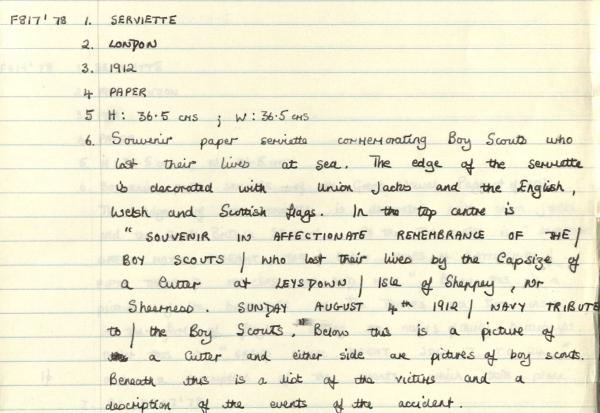 F817' 78 1. SERVIETTE
2. LONDON
3. 1912
4 PAPER
5 H: 36.5 cms ; W: 36.5 cms
6. Souvenir paper serviette commemorating Boy Scouts who
lost their lives at sea. The edge of the serviette
is decorated with Union Jacks and the English,
Welsh and Scottish flags. In the top centre is
" SOUVENIR IN AFFECTIONATE REMEMBRANCE OF THE/
BOY SCOUTS / who lost their lives by the Capsize of
a Cutter at LEYSDOWN / Isle of Sheppey, Nr
Sheerness. SUNDAY AUGUST 4th 1912 / NAVY TRIBUTE
to / the Boy Scouts." Below this is a picture of
a Cutter and either side are pictures of boy scouts.
Beneath this is a list of the victims and a
description of the events of the accident.